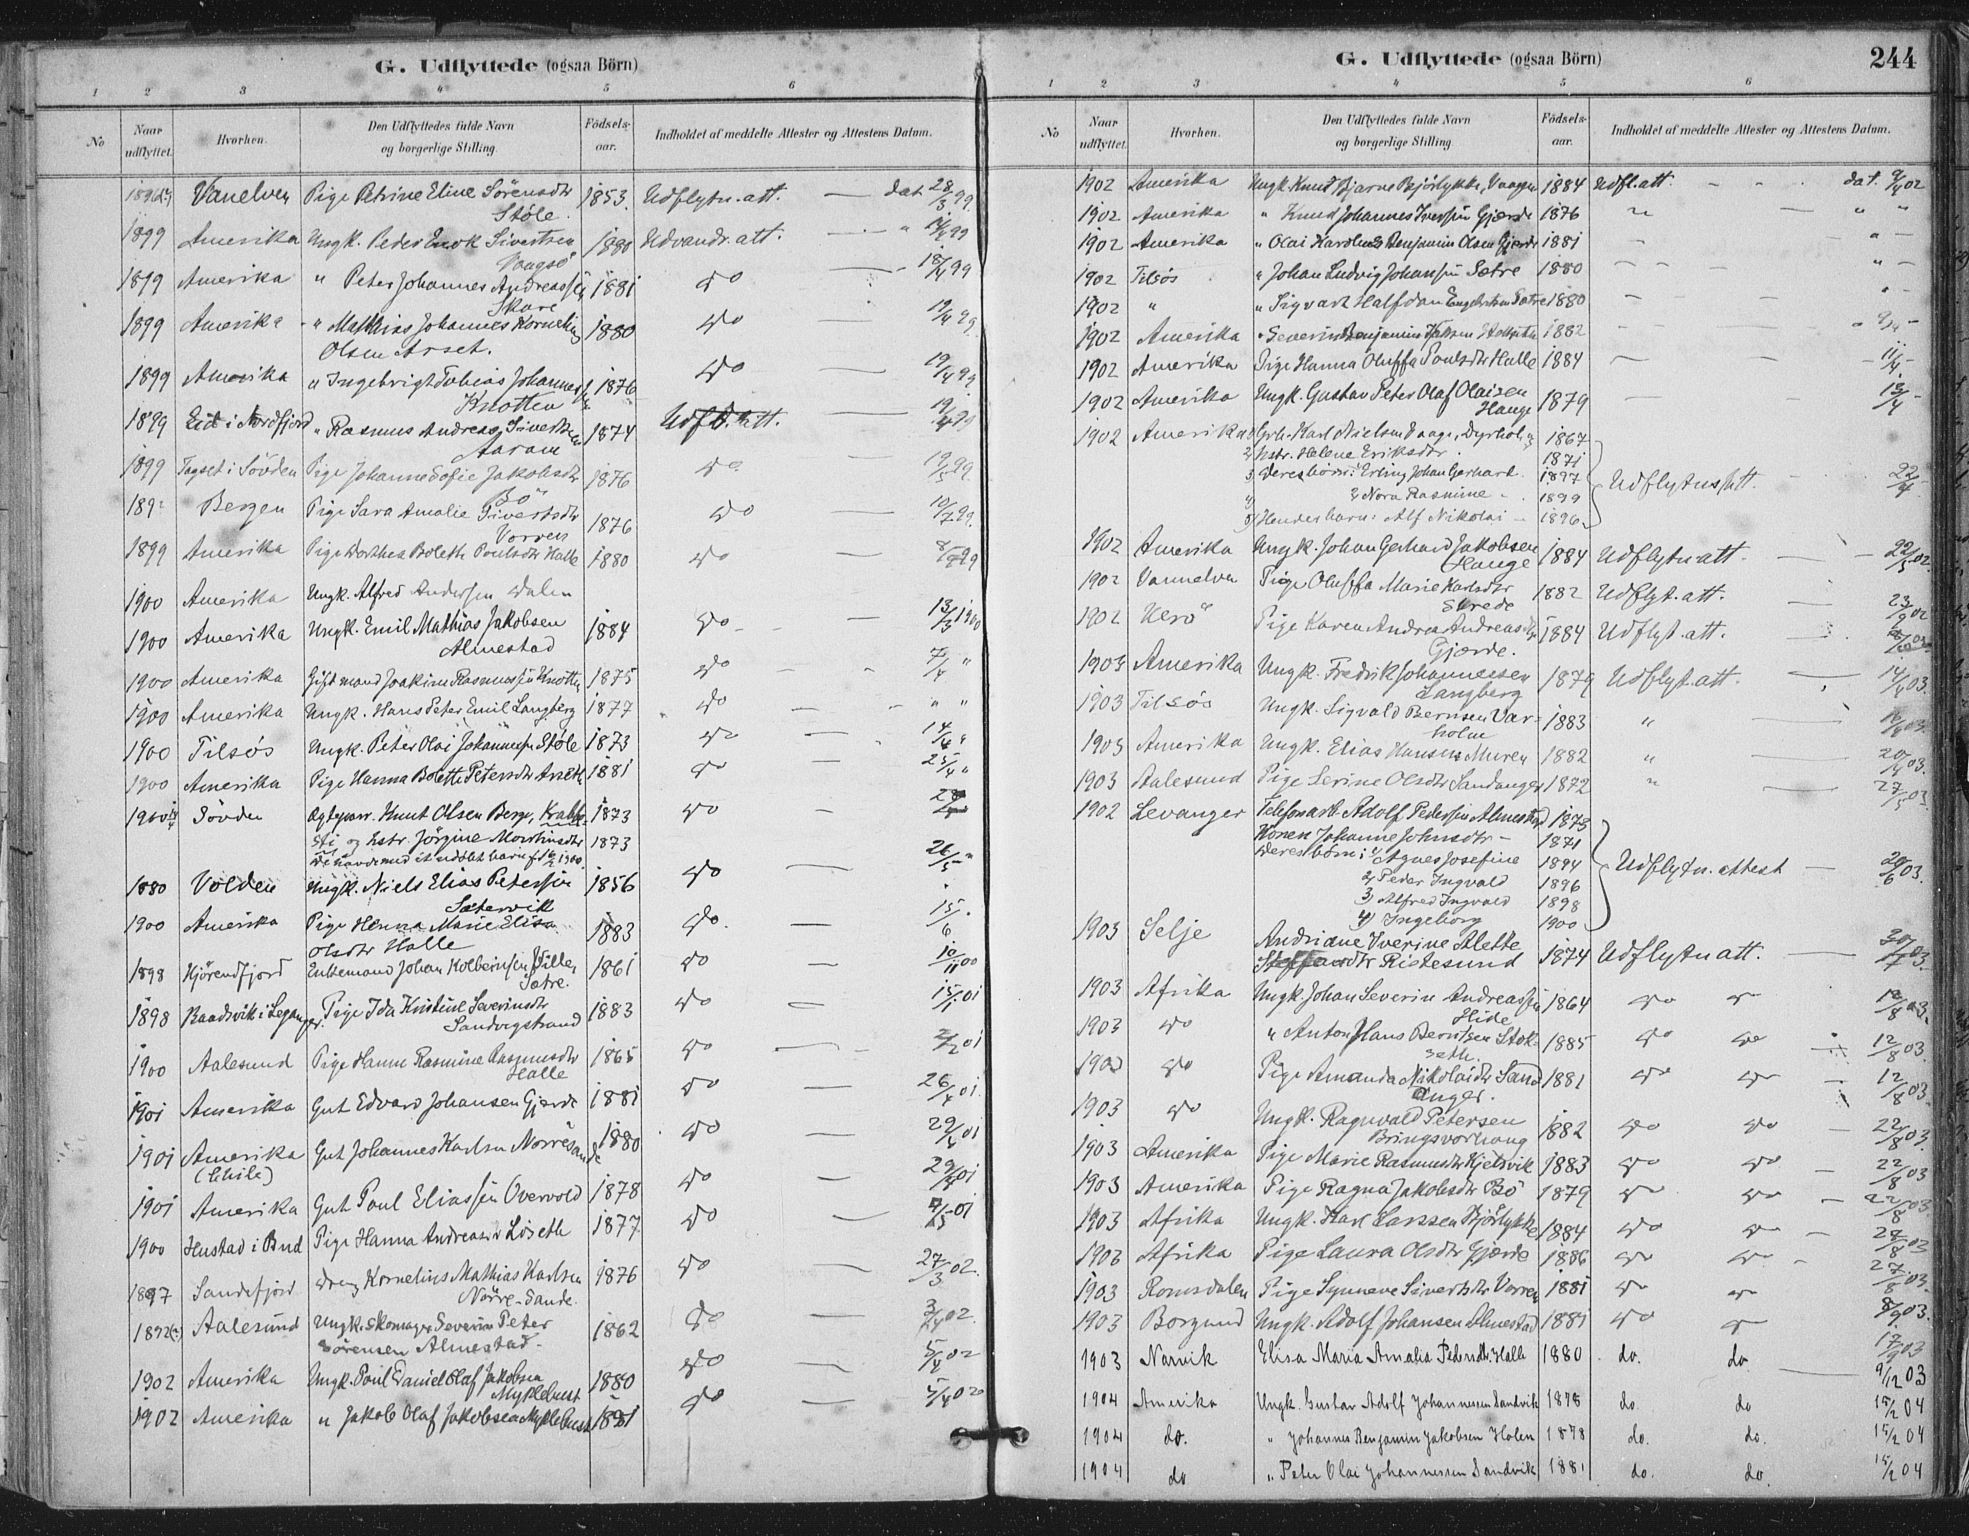 G. Udflyttede (ogsaa Börn)
1 2 3 4 5 6
No Naar udflyttet. Hvorhen. Den Udflyttedes fulde Navn og borgerlige Stilling. Födsels-aar. Indholdet af meddelte Attester og Attestens Datum.
Vanelven Pige Petrine Eline Sörensdtr 1853. Udflytn. att. — dat. 28/3 99.
Støle.
1899 Amerika Ungk. Peder Enok Sivertsen 1880 Udvandr. att. — "
Vaagsö
1899 Amerika " Peter Johannes Andreassen 1881 do — 18/4 99
Skare
1899 Amerika " Mathias Johannes Kornelius 1880 do — 19/4 99.
Olsen Arset.
1899 Amerika " Ingebrigt Tobias Johannes 1876 do — 19/4 99.
Knotten
1899 Eid i Nordfjord " Rasmus Andreas Sivertsen 1874 Udfl. att. — 19/4 99
Aaram
1899 i Sövden Pige Johanne Sofie Jakobsdtr 1876 do — 99.
Bö
Bergen Pige Sara Amalie Sivertsdtr 1876 do — 10/7 99.
Vorren
1899 Amerika Pige Dorthea Bolette Poulsdtr Halle 1880 do — 99
1900 Amerika Ungk. Alfred Andersen Dalen
1900 Amerika Ungk. Emil Mathias Jakobsen 1884 do — 13/3 1900
Almestad
1900 Amerika Giftmand Joakim Rasmussen Knotten 1875 do - - 7/4 "
1900 Amerika Ungk. Hans Peter Emil Langberg 1877 do - " "
1900 Tilsøs Ungk. Peter Olai Johannessen Støle 1873 do — 14/4 "
1900 Amerika Pige Hanna Bolette Petersdtr Arseth 1881 do — 25/4 "
1900 Sövden Egtepar. Knut Olsen Berg, Krabbe- 1873 do -
sti og hstr. Jörgine Martinsdtr 1873
1880 Volden Ungk. Niels Elias Petersen 1856 do — 26/5 "
Sætervik
1900 Amerika Pige Hanna Marie Elisa 1883 do. — 15/6
Olsdtr Halle
1898 Hjörendfjord Enkemand Johan Kolbeinsen 1861 do — 10/11 00
Sætre.
1898 Baadsvik i Leganger. Pige Ida Kristine Severinsdtr 1883 do — 15/1 01
Sandvigstrand
1900 Aalesund Pige Hanne Rasmine Rasmusdtr 1865 do — 2/2 01
Halle
1901 Amerika Gut Edvard Johansen Gjerde 1881 do — 26/4 01.
1901 Amerika Gut Johannes Karlsen Norresande 1880 do — 01
(Chile)
1901 Amerika Gut Poul Eliassen Overvold 1878 do — 01
1900 Hustad i Bud Pige Hanna Andreasdr Löseth 1877 do — 01
1897 Sandefjord Dreng Kornelius Mathias Karlsen 1876 do — 27/3 02.
Nörre-Sande.
1892(?) Aalesund Ungk. Skomager Severin Peter 1862 do — 3/4 02.
Sörensen Almestad.
1902 Amerika Ungk. Poul Daniel Olaf Jakobsen 1880 do — 5/4 02
Myklebust
1902 Amerika " Jakob Olaf Jakobsen Myklebust 1881 do — 5/4 02
G. Udflyttede (ogsaa Börn) 244
1 2 3 4 5 6
No Naar udflyttet. Hvorhen. Den Udflyttedes fulde Navn og borgerlige Stilling. Födsels-aar. Indholdet af meddelte Attester og Attestens Datum.
1902 Amerika Ungk. Knud Bjarne Björlykke, Vaagen 1884 Udfl. att. - - dat. 9/4 02
1902 Amerika " Knud Johannes Iversen Gjærde 1876 " — " "
1902 Amerika " Olai Karolius Benjamin Olsen Gjærde 1881 - " -
1902 Tilsøs " Johan Ludvig Johansen Sætre 1880 - - - " -
1902 " " Sigvart Halfdan Engebretsen Sætre 1880 - - - " -
1902 Amerika " Severin Benjamin 1882 - - - 9/4 -
1902 Amerika Pige Hanna Oluffa Poulsdtr Halle 1884 - - - 11/4 -
1902 Amerika Ungk. Gustav Peter Olaf Olaisen 1879 - - - 13/4 -
Hauge
1902 Amerika Karl Nielsen Vaage, Dyrhol 1867
2, hstr. Helene Eriksdtr. 1871
3, Deres börn: 1, Erling Johan Gerhard. 1897 Udflytn. att. 22/4 -
2, Nora Rasmine 1899
5, Hendes barn: Alf Nikolai — 1896
1902 Amerika Ungk. Johan Gerhard Jakobsen 1884 Udflytn. att. — 22/5 02.
Hauge
1902 Vannelven Pige Oluffa Marie Karlsdtr 1882 Udflyt. att. — 23/9 02
1902 Herö Pige Karen Andrea Andreasdtr 1884 Udflyt. att. —
Gjærde.
1903 Amerika Ungk. Fredrik Johannessen 1879 Udflyt. att. — 14/4 03.
Langberg
1903 Tilsøs Ungk. Sigvald Berntsen Var- 1883 " — 16/4 03.
holm
1903 Amerika Ungk. Elias Hansen Muren 1882 " — 20/4 03.
1903 Aalesund Pige Serine Olsdtr Sandanger 1872 " — 27/5 03.
1902 Levanger Telefonarb. Adolf Pedersen Almestad 1873
Konen Johanne Johnsdtr — 1871
Deres börn: 1, Agnes Josefine 1894 Udflytn. attest — 20/6 03.
2, Peder Ingvald 1896
3, Alfred Ingvald 1898
4, Ingeborg 1900
1903 Selje Andriane Iverine Alette
Steffensdtr Ristesund 1874 Udflytn att. — 30/7 03.
1903 Afrika Ungk. Johan Severin Andreassen 1864 do do 12/8 03.
Hide
1903 do " Anton Hans Berntsen Stok- 1885 do do — 12/8 03.
seth.
1903 do Pige Amanda Nikolaidtr Sand- 1881 do do - 12/8 03.
anger.
1903 do Ungk. Ragnvald Petersen 1882 do do — 22/8 03.
Bringsvorhaug
1903 Amerika Pige Marie Rasmusdtr Kjelsvik 1883 do do — 22/8 03
1903 Amerika Pige Ragna Jakobsdtr Bö 1879 do do — 22/8 03.
1903 Afrika Ungk. Karl Larssen Bjørlykke 1884 do do — 27/8 03
1903 Afrika Pige Laura Olsdtr Gjærde 1886 do do - 27/8 03.
1903 Romsdalen Pige Synneve Sivertsdtr Vorren 1881 do do
1903 Borgund Ungk. Adolf Johansen Almestad 1881 do do 8/9 03.
1903 Narvik Elisa Maria Amalia Pedersdtr Halle 1880 do. do. 17/9 03
9/12 03
1904 Amerika Ungk. Gustav Adolf Johannessen Sandvik 1878 do. do 15/2 04
1904 do. " Johannes Benjamin Jakobsen Holen 1878 do. do. 15/2 04
1904 do " Peter Olai Johannessen Sandvik 1881 do. do. 15/2 04